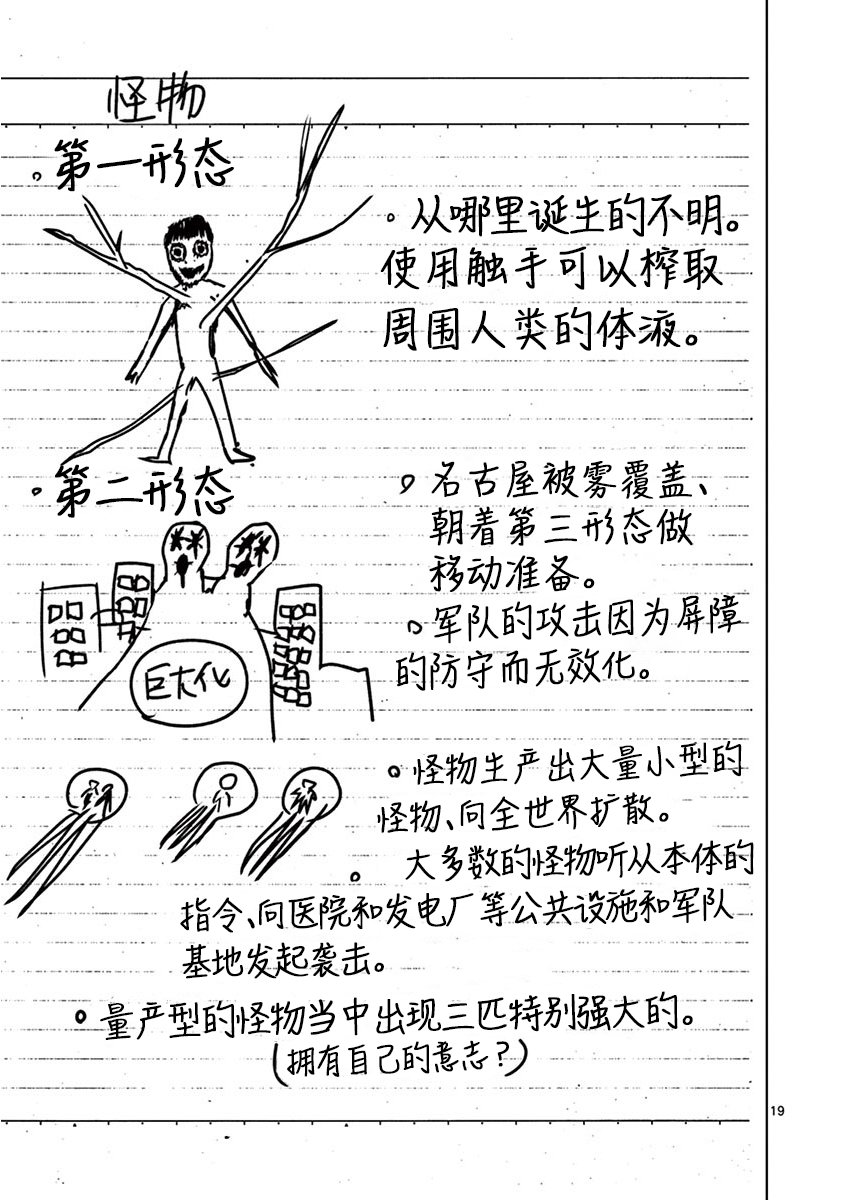 怪物
。第一形态
。从哪里诞生的不明。
使用触手可以榨取
周围人类的体液。
。第二形态
。名古屋被雾覆盖、
朝着第三形态做
移动准备。
。军队的攻击因为屏障
的防守而无效化。
巨大化
。怪物生产出大量小型的
怪物、向全世界扩散。
。大多数的怪物听从本体的
指令、向医院和发电厂等公共设施和军队
基地发起袭击。
。量产型的怪物当中出现三匹特别强大的。
(拥有自己的意志?)
19